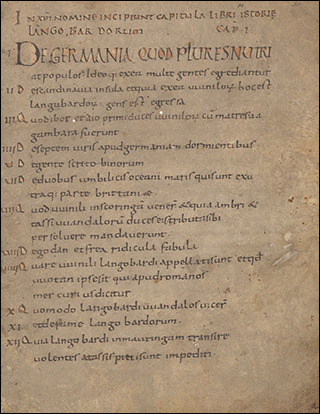 IN XPI NOMINE INCIPIUNT CAPITULA LIBRI ISTORIE
LANGOBARDORUM CAP I
DE GERMANIA QUOD PLURES NUTRI
at populos & ideo que ex ea mult gentes egrediantur
II De scandinavia insula et quia ex ea vvinilorum hoc est
langubardorum gens est egressa
III Quod ibor et aio primi duces vvinilorum cum matre sua
gambara fuerunt
IIII De septem viris apud germaniam dormientibus
V De gente scritobinorum
VI De duobus umbilicis oceani maris qui sunt ex u
traque parte brittaniae
VII Quod vvinili in scoringam venerunt & quia ambri &
tassi vvandalorum duces eis tributa sibi
persolvere mandaverunt
VIII De godan et frea ridicula fabula
VIIII Quare vvinili langobardi appellati sunt et quod
vvotan ipse sit qui apud romanos
mercurius dicitur
X Quomodo langobardi vvandalos vicerunt
XI et de fame langobardorum
XII Quia langobardi in mauringam transire
volentes ab assipitti sunt impediti